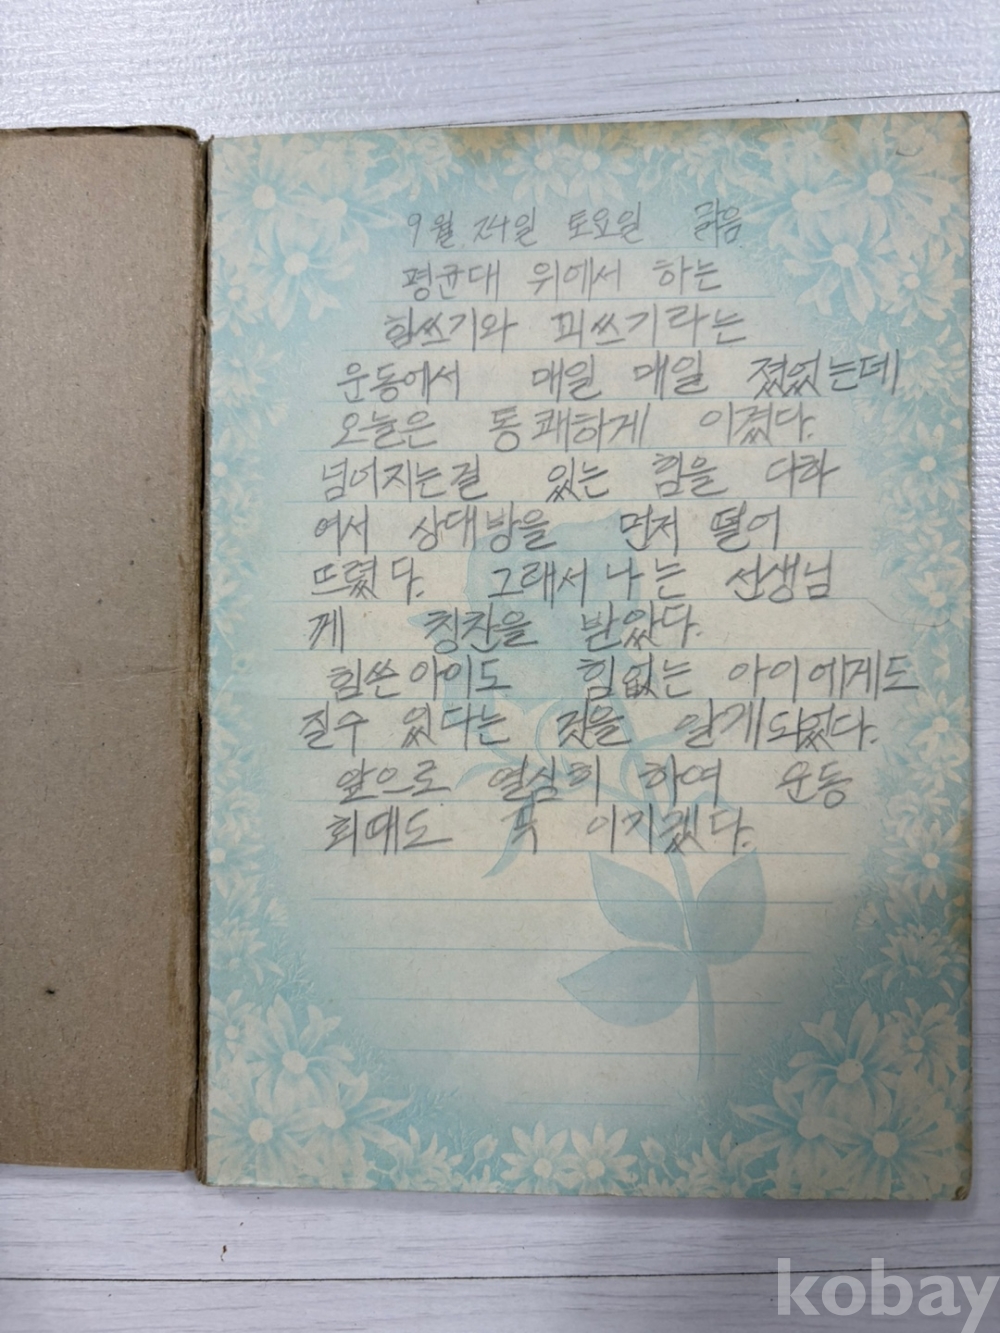 9월 24일 토요일 맑음
평균대 위에서 하는
힘쓰기와 꾀쓰기라는
운동에서 매일 매일 졌었는데
오늘은 통쾌하게 이겼다.
넘어지는걸 있는 힘을 다하
여서 상대방을 먼저 떨어
뜨렸다. 그래서 나는 선생님
게 칭찬을 받았다.
힘쓴아이도 힘없는 아이에게도
질수 있다는 것을 알게되었다.
앞으로 열심히 하여 운동
회때도 꼭 이기겠다.
kobay